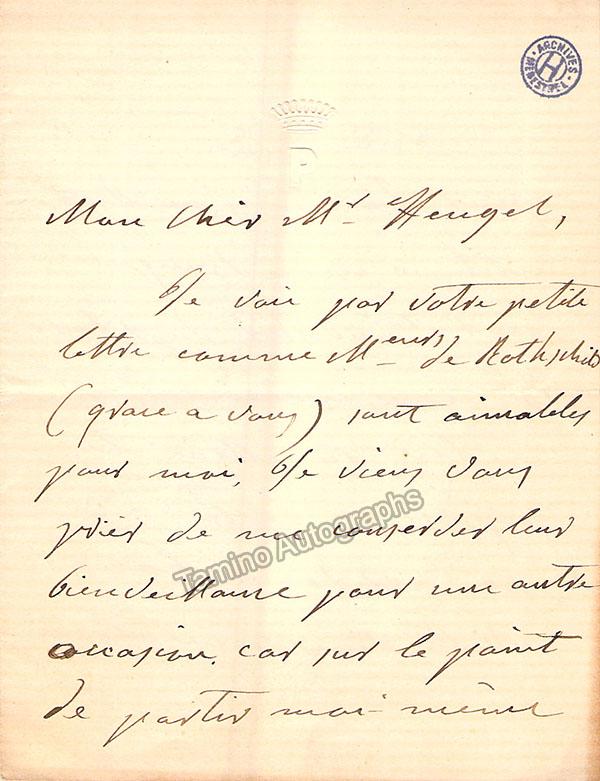 ARCHIVES
H
MENESTREL
P
Mon cher Mr Heugel,
Je vois par votre petite
lettre comme Meurs de Rothschild
(grace a vous) sont aimables
pour moi, Je viens vous
prier de me conserver leur
bienveillance pour une autre
occasion, car sur le point
de partir moi-même
Tamino Autographs